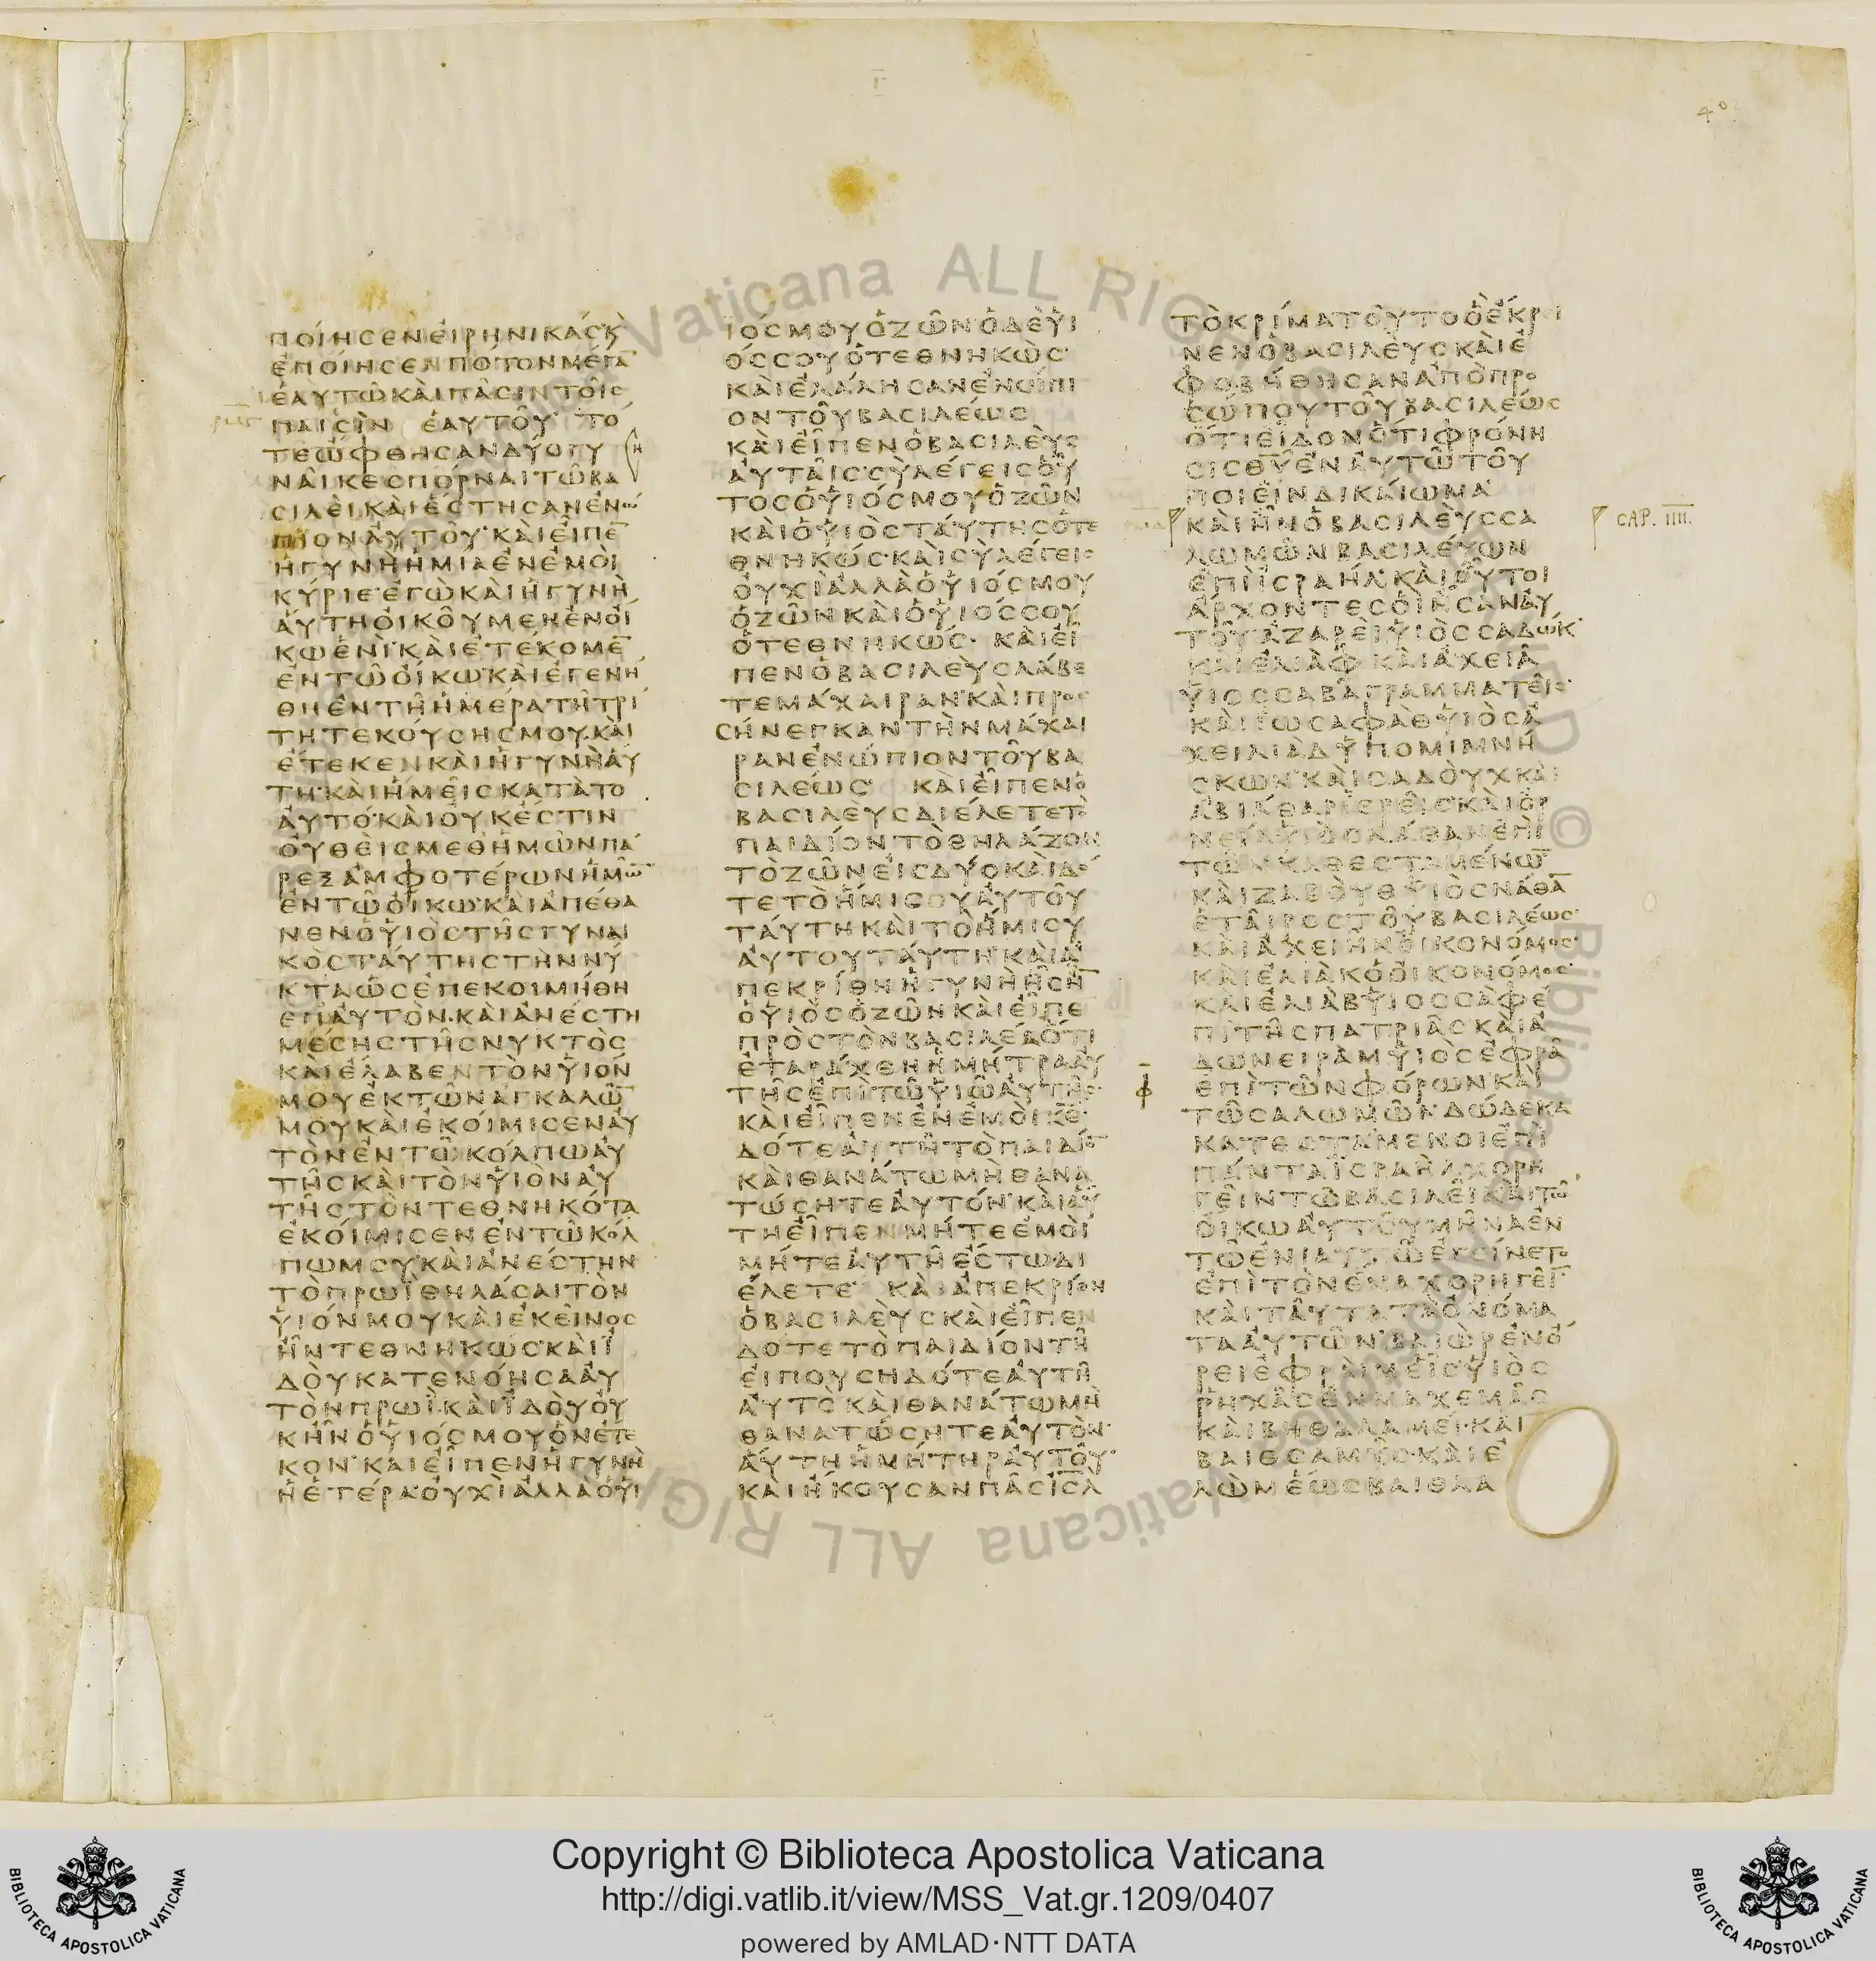 Γ
403
ΠΟΙΗϹΕΝΕΙΡΗΝΙΚΑϹϏ
ΕΠΟΙΗϹΕΝΠΟΤΟΝΜΕΓΑ̅
ΕΑΥΤΩΚΑΙΠΑϹΙΝΤΟΙϹ
ΠΑΙϹΙΝ ΕΑΥΤΟΥ ΤΟ
ΤΕΩΦΘΗϹΑΝΔΥΟΓΥ
ΝΑΙΚΕϹΠΟΡΝΑΙΤΩΒΑ
ϹΙΛΕΙΚΑΙΕϹΤΗϹΑΝΕΝΩ
ΠΙΟΝΑΥΤΟΥ ΚΑΙΕΙΠΕ̅
ΗΓΥΝΗΗΜΙΑΕΝΕΜΟΙ
ΚΥΡΙΕΕΓΩΚΑΙΗΓΥΝΗ
ΑΥΤΗΟΙΚΟΥΜΕΝΕΝΟΙ
ΚΩΕΝΙΚΑΙΕΤΕΚΟΜΕ̅
ΕΝΤΩΟΙΚΩΚΑΙΕΓΕΝΗ
ΘΗΕΝΤΗΗΜΕΡΑΤΗΤΡΙ
ΤΗΤΕΚΟΥϹΗϹΜΟΥΚΑΙ
ΕΤΕΚΕΝΚΑΙΗΓΥΝΗΑΥ
ΤΗΚΑΙΗΜΕΙϹΚΑΤΑΤΟ
ΑΥΤΟΚΑΙΟΥΚΕϹΤΙΝ
ΟΥΘΕΙϹΜΕΘΗΜΩΝΠΑ
ΡΕΞΑΜΦΟΤΕΡΩΝΗΜΩ̅
ΕΝΤΩΟΙΚΩΚΑΙΑΠΕΘΑ
ΝΕΝΟΥΙΟϹΤΗϹΓΥΝΑΙ
ΚΟϹΤΑΥΤΗϹΤΗΝΝΥ
ΚΤΑΩϹΕΠΕΚΟΙΜΗΘΗ
ΕΠΑΥΤΟΝ·ΚΑΙΑΝΕϹΤΗ
ΜΕϹΗϹΤΗϹΝΥΚΤΟϹ
ΚΑΙΕΛΑΒΕΝΤΟΝΥΙΟΝ
ΜΟΥΕΚΤΩΝΑΓΚΑΛΩ̅
ΜΟΥΚΑΙΕΚΟΙΜΙϹΕΝΑΥ
ΤΟΝΕΝΤΩΚΟΛΠΩΑΥ
ΤΗϹΚΑΙΤΟΝΥΙΟΝΑΥ
ΤΗϹΤΟΝΤΕΘΝΗΚΟΤΑ
ΕΚΟΙΜΙϹΕΝΕΝΤΩΚΟΛ
ΠΩΜΟΥΚΑΙΑΝΕϹΤΗΝ
ΤΟΠΡΩΪΘΗΛΑϹΑΙΤΟΝ
ΥΙΟΝΜΟΥΚΑΙΕΚΕΙΝΟϹ
ΗΝΤΕΘΝΗΚΩϹΚΑΙΪ
ΔΟΥΚΑΤΕΝΟΗϹΑΑΥ
ΤΟΝΠΡΩΪΚΑΙΪΔΟΥΟΥ
ΚΗΝΟΥΙΟϹΜΟΥΟΝΕΤΕ
ΚΟΝ ΚΑΙΕΙΠΕΝΗΓΥΝΗ
ΗΕΤΕΡΑΟΥΧΙΑΛΛΑΟΥΙ
ΙΟϹΜΟΥΟΖΩΝΟΔΕΥΙ
ΟϹϹΟΥΟΤΕΘΝΗΚΩϹ
ΚΑΙΕΛΑΛΗϹΑΝΕΝΩΠΙ
ΟΝΤΟΥΒΑϹΙΛΕΩϹ
ΚΑΙΕΙΠΕΝΟΒΑϹΙΛΕΥϹ
ΑΥΤΑΙϹϹΥΛΕΓΕΙϹΟΥ
ΤΟϹΟΥΙΟϹΜΟΥΟΖΩΝ
ΚΑΙΟΥΙΟϹΤΑΥΤΗϹΟΤΕ
ΘΝΗΚΩϹΚΑΙϹΥΛΕΓΕΙϹ
ΟΥΧΙΑΛΛΑΟΥΙΟϹΜΟΥ
ΟΖΩΝΚΑΙΟΥΙΟϹϹΟΥ
ΟΤΕΘΝΗΚΩϹ· ΚΑΙΕΙ
ΠΕΝΟΒΑϹΙΛΕΥϹΛΑΒΕ
ΤΕΜΑΧΑΙΡΑΝΚΑΙΠΡΟϹ
ϹΗΝΕΓΚΑΝΤΗΝΜΑΧΑΙ
ΡΑΝΕΝΩΠΙΟΝΤΟΥΒΑ
ϹΙΛΕΩϹ ΚΑΙΕΙΠΕΝΟ
ΒΑϹΙΛΕΥϹΔΙΕΛΕΤΕΤΟ
ΠΑΙΔΙΟΝΤΟΘΗΛΑΖΟΝ
ΤΟΖΩΝΕΙϹΔΥΟΚΑΙΔΟ
ΤΕΤΟΗΜΙϹΟΥΑΥΤΟΥ
ΤΑΥΤΗΚΑΙΤΟΗΜΙϹΥ
ΑΥΤΟΥΤΑΥΤΗΚΑΙΑ
ΠΕΚΡΙΘΗΗΓΥΝΗΗϹΗ̅
ΟΥΙΟϹΟΖΩΝΚΑΙΕΙΠΕ
ΠΡΟϹΤΟΝΒΑϹΙΛΕΑΟΤΙ
ΕΤΑΡΑΧΘΗΗΜΗΤΡΑΑΥ
ΤΗϹΕΠΙΤΩΥΙΩΑΥΤΗϹ
ΚΑΙΕΙΠΕΝΕΝΕΜΟΙΚ̅Ε̅
ΔΟΤΕΑΥΤΗΤΟΠΑΙΔΙΟ̅
ΚΑΙΘΑΝΑΤΩΜΗΘΑΝΑ
ΤΩϹΗΤΕΑΥΤΟΝ ΚΑΙΑΥ
ΤΗΕΙΠΕΝΜΗΤΕΕΜΟΙ
ΜΗΤΕΑΥΤΗΕϹΤΩΔΙ
ΕΛΕΤΕ ΚΑΙΑΠΕΚΡΙΘΗ
ΟΒΑϹΙΛΕΥϹΚΑΙΕΙΠΕΝ
ΔΟΤΕΤΟΠΑΙΔΙΟΝΤΗ
ΕΙΠΟΥϹΗΔΟΤΕΑΥΤΗ
ΑΥΤΟΚΑΙΘΑΝΑΤΩΜΗ
ΘΑΝΑΤΩϹΗΤΕΑΥΤΟΝ
ΑΥΤΗΗΜΗΤΗΡΑΥΤΟΥ
ΚΑΙΗΚΟΥϹΑΝΠΑϹΙ̅Ϲ̅Λ̅
ΤΟΚΡΙΜΑΤΟΥΤΟΟΕΚΡΙ
ΝΕΝΟΒΑϹΙΛΕΥϹΚΑΙΕ
ΦΟΒΗΘΗϹΑΝΑΠΟΠΡΟ
ϹΩΠΟΥΤΟΥΒΑϹΙΛΕΩϹ
ΟΤΙΕΙΔΟΝΟΤΙΦΡΟΝΗ
ϹΙϹΘ̅Υ̅ΕΝΑΥΤΩΤΟΥ
ΠΟΙΕΙΝΔΙΚΑΙΩΜΑ
ΚΑΙΗΝΟΒΑϹΙΛΕΥϹϹΑ
CAP. IIII.
ΛΩΜΩΝΒΑϹΙΛΕΥΩΝ
ΕΠΙΪϹΡΑΗΛ ΚΑΙΟΥΤΟΙ
ΑΡΧΟΝΤΕϹΟΙΗϹΑΝΑΥ
ΤΟΥΑΖΑΡΕΙΥΙΟϹϹΑΔΩΚ
ΚΑΙΕΛΙΑΦ ΚΑΙΑΧΕΙΑ
ΥΙΟϹϹΑΒΑΓΡΑΜΜΑΤΕΙϹ
ΚΑΙΪΩϹΑΦΑΘΥΙΟϹΑ
ΧΕΙΛΙΑΔΥΠΟΜΙΜΝΗ
ϹΚΩΝ ΚΑΙϹΑΔΟΥΧΚΑΙ
ΑΒΙΑΘΑΡΙΕΡΕΙϹΚΑΙΟΡ
ΝΕΙΑΥΙΟϹΝΑΘΑΝΕΠΙ
ΤΩΝΚΑΘΕϹΤΑΜΕΝΩ̅
ΚΑΙΖΑΒΟΥΘΥΙΟϹΝΑΘΑ̅
ΕΤΑΙΡΟϹΤΟΥΒΑϹΙΛΕΩϹ
ΚΑΙΑΧΕΙΗΚΟΙΚΟΝΟΜΟϹ
ΚΑΙΕΛΙΑΚΟΟΙΚΟΝΟΜΟϹ
ΚΑΙΕΛΙΑΒΥΙΟϹϹΑΦΕ
ΠΙΤΗϹΠΑΤΡΙΑϹΚΑΙΑ
ΔΩΝΕΙΡΑΜΥΙΟϹΕΦΡΑ
ΕΠΙΤΩΝΦΟΡΩΝΚΑΙ
ΤΩϹΑΛΩΜΩΝΔΩΔΕΚΑ
ΚΑΤΕϹΤΑΜΕΝΟΙΕΠΙ
ΠΑΝΤΑΪϹΡΑΗΛΧΟΡΗ
ΓΕΙΝΤΩΒΑϹΙΛΕΙΚΑΙΤΩ
ΟΙΚΩΑΥΤΟΥΜΗΝΑΕΝ
ΤΩΕΝΙΑΥΤΩΕΓΕΙΝΕΤΟ
ΕΠΙΤΟΝΕΝΑΧΟΡΗΓΕΙ̅
ΚΑΙΤΑΥΤΑΤΑΟΝΟΜΑ
ΤΑΑΥΤΩΝ ΒΑΙΩΡΕΝΟ
ΡΕΙΕΦΡΑΙΜΕΙϹΥΙΟϹ
ΡΗΧΑϹΕΝΜΑΧΕΜΑϹ
ΚΑΙΒΗΘΑΛΑΜΕΙ·ΚΑΙ
ΒΑΙΘϹΑΜΥϹ·ΚΑΙΕ
ΛΩΜΕΩϹΒΑΙΘΛΑ
Copyright © Biblioteca Apostolica Vaticana
http://digi.vatlib.it/view/MSS_Vat.gr.1209/0407
powered by AMLAD·NTT DATA
BIBLIOTECA APOSTOLICA VATICANA
BIBLIOTECA APOSTOLICA VATICANA